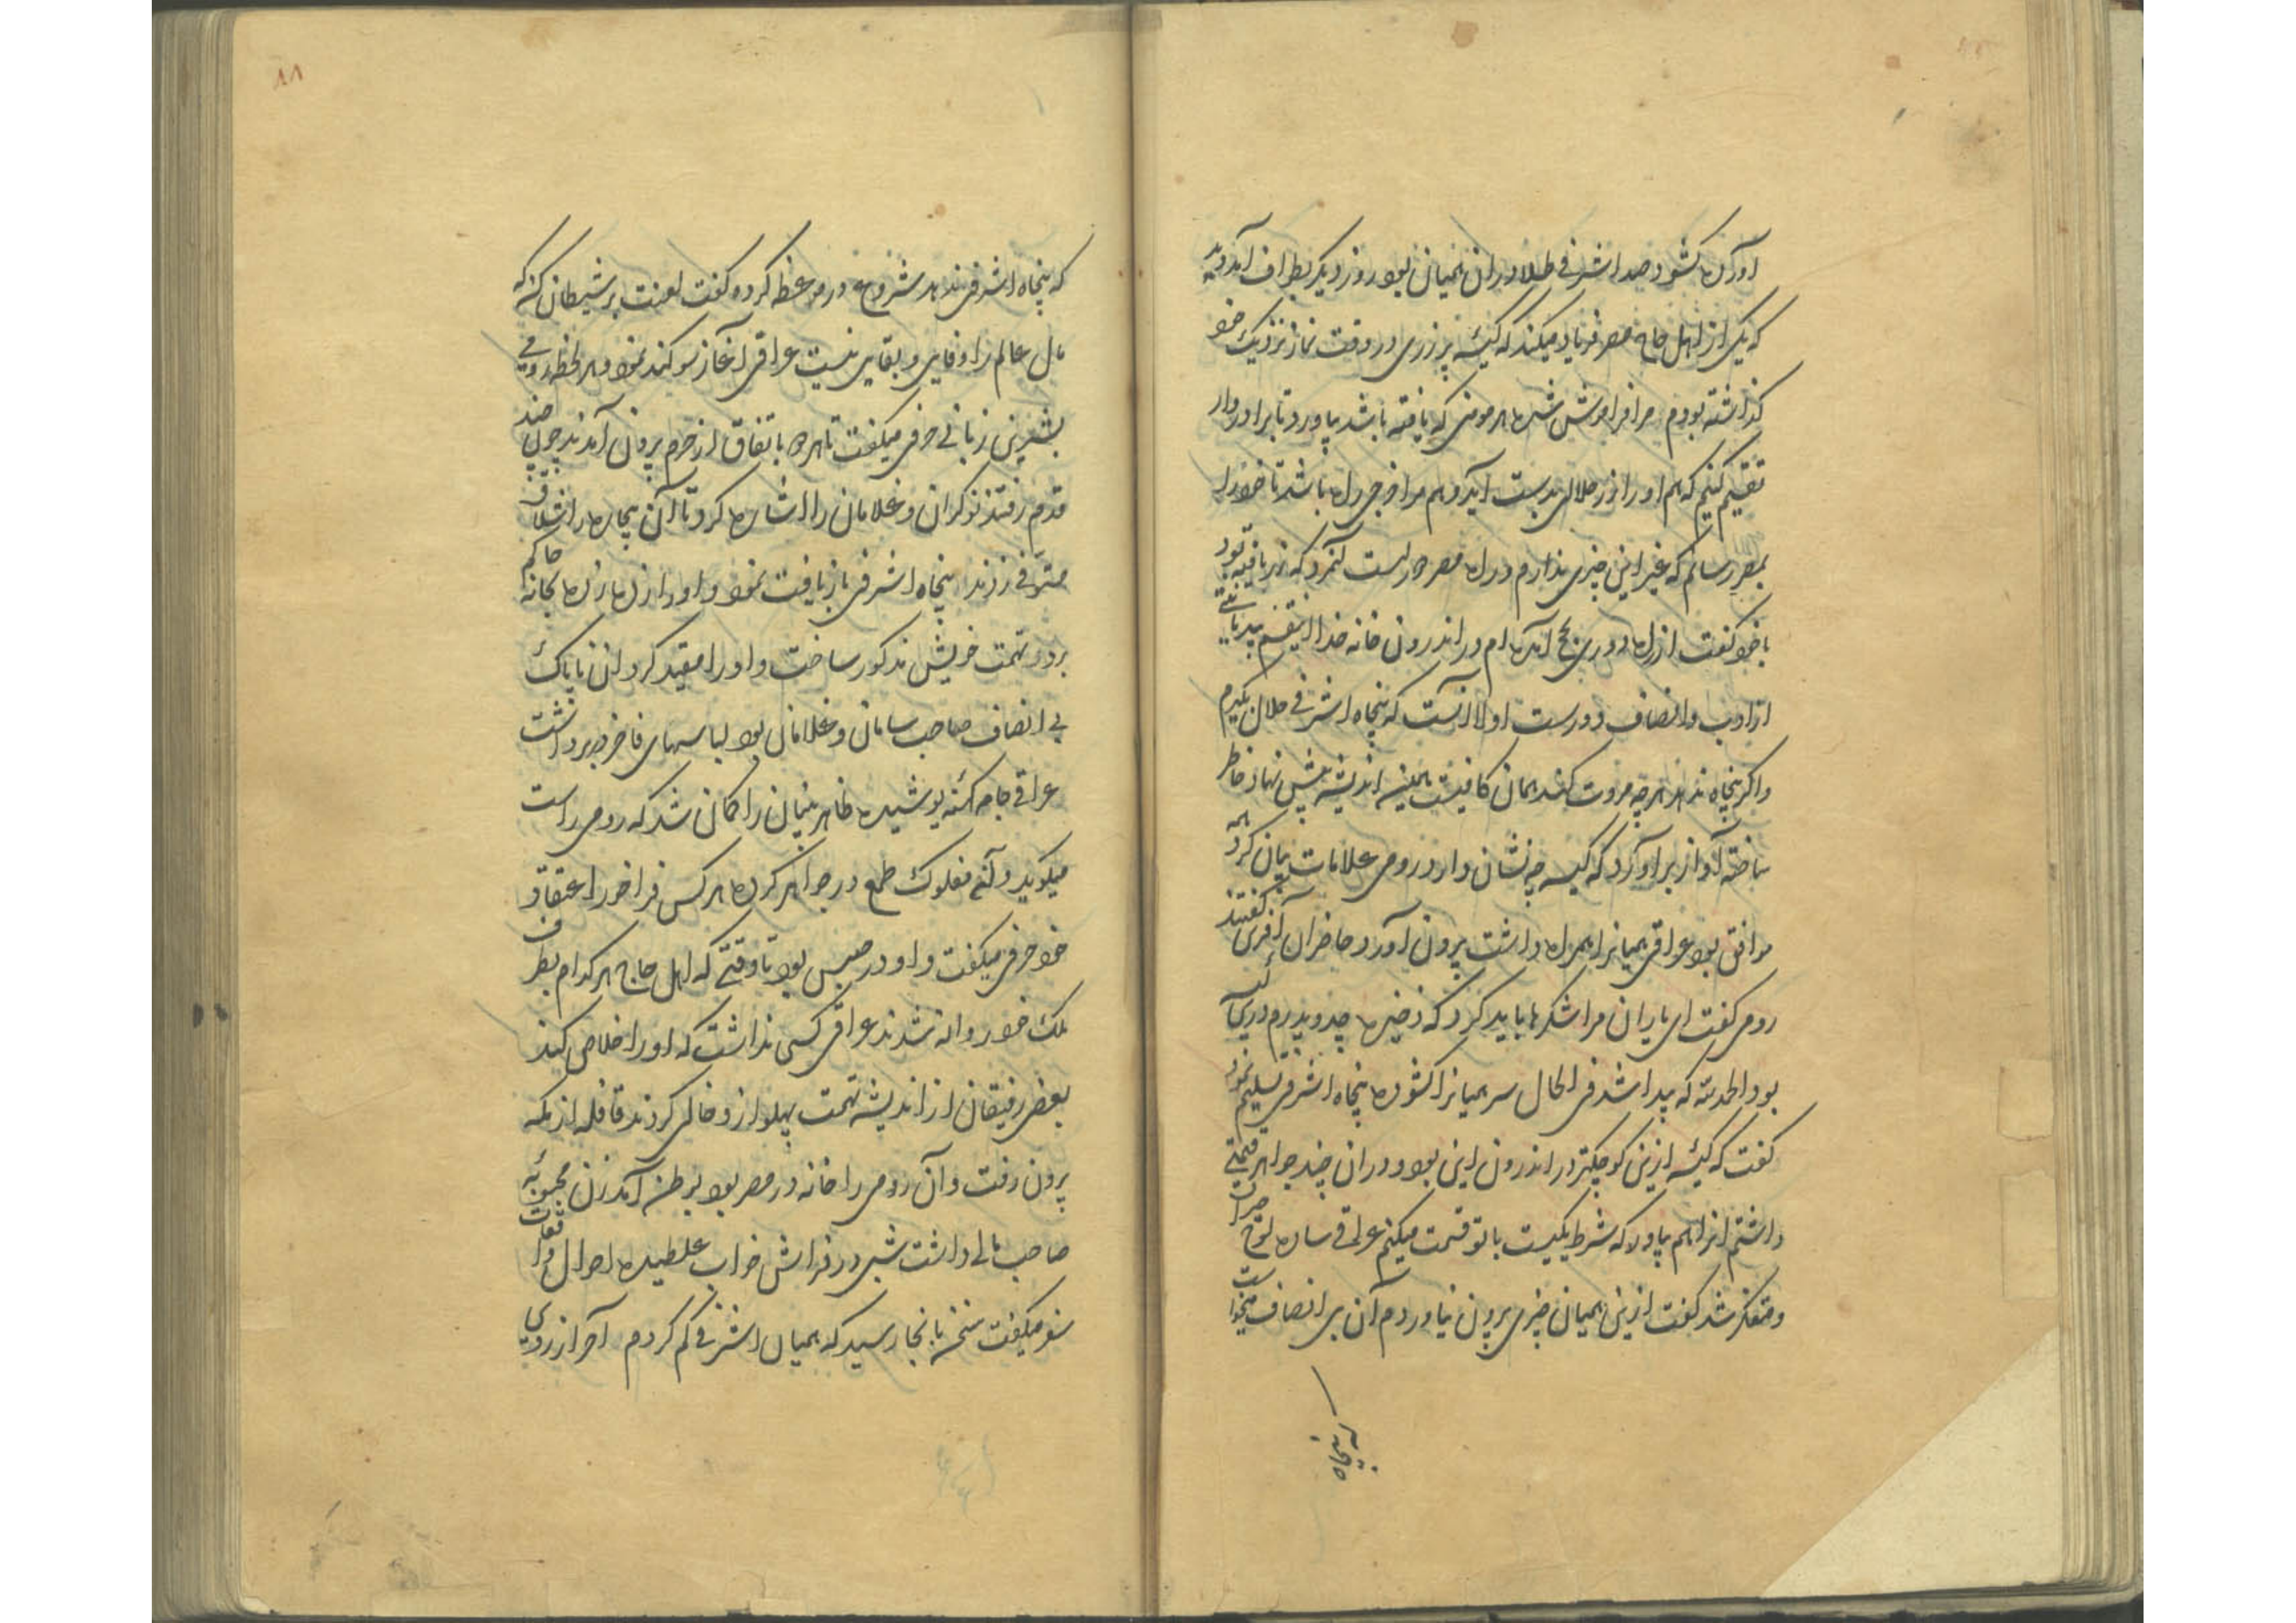 آورده بکشود صد اشرفی طلا دران همیان بود روز دیگر بطواف آمد دید
که یکی از اهل حاج مصر فریاد میکند که کیسه پر زری در وقت نماز نزدیک خود
گذاشته بودم مرا فراموش شده هر مومنی که یافته باشد بیاورد تا برادروار
تقسیم کنیم که هم او را زر حلال بدست آید و هم مرا خرجی راه باشد تا خود را
بمصر رسانم که غیر ازین چیزی ندارم و راه مصر دراست آنمرد که زر یافته بود
با خود گفت از راه دور بحج آمده ام و از اندرون خانه خدا
از ادب و انصاف دورست اولا آنست که پنجاه اشرفی حلال بگیرم
و اگر پنجاه ندهد هرچه مروت کند همان کافیست همین اندیشه پیش نهاد خاطر
ساخته آواز برآورد که کیسه چه نشان دارد رومی علامات بیان کرد همه
موافق بود عراقی همیانرا همراه داشت بیرون آورد حاضران آفرین گفتند
رومی گفت ای یاران مرا شکرها باید کرد که ذخیره جد و پدرم درین کیسه
بود الحمدلله که پیدا شد فی الحال سر همیانرا کشوده پنجاه اشرفی تسلیم نمود
گفت که کیسه ازین کوچکتر در اندرون این بود و دران چند جواهر قیمتی
داشتم انرا هم بیاور که شرط یکیست با تو قسمت میکنم عراقی ساده لوح حیران
و متفکر شد گفت ازین همیان چیزی بیرون نیاوردم آن بی انصاف میخواست
که پنجاه
۸۸
که پنجاه اشرفی ندهد شروع در موعظه کرد و گفت لعنت بر شیطان کن که
مال عالم را وفایی و بقایی نیست عراقی آغاز سوکند نمود و هر لحظه رومی
بشیرین زبانی حرفی میگفت تا هر دو باتفاق از حرم بیرون آمدند چون چند
قدم رفتند نوکران و غلامان را اشاره کرد تا آن بیچاره را شلاق
مستوفی زدند پنجاه اشرفی بازیافت نمود و او را زده زده بخانه حاکم
برد و تهمت خویش مذکور ساخت و او را مقید کرد آن ناپاک
بی انصاف صاحب سامان و غلامان بود لباسهای فاخر در بر داشت
عراقی جامه کهنه پوشیده ظاهر بینان را گمان شد که رومی راست
میگوید و آن مفلوک طمع در جواهر کرده هر کس فراخور اعتقاد
خود حرفی میگفت و او در حبس بود تا وقتی که اهل حاج هر کدام بطرف
ملک خود روانه شدند عراقی کسی نداشت که او را خلاص کند
بعضی رفیقان از اندیشه تهمت پهلو ازو خالی کردند قافله از مکه
بیرون رفت و آن رومی را خانه در مصر بود بوطن آمد زن محبوبه
صاحب مالی داشت شبی در فراش خواب غلطیده احوال
سفر میگفت سخن بانجا رسید که همیان اشرفی گم کردم آخر از روی